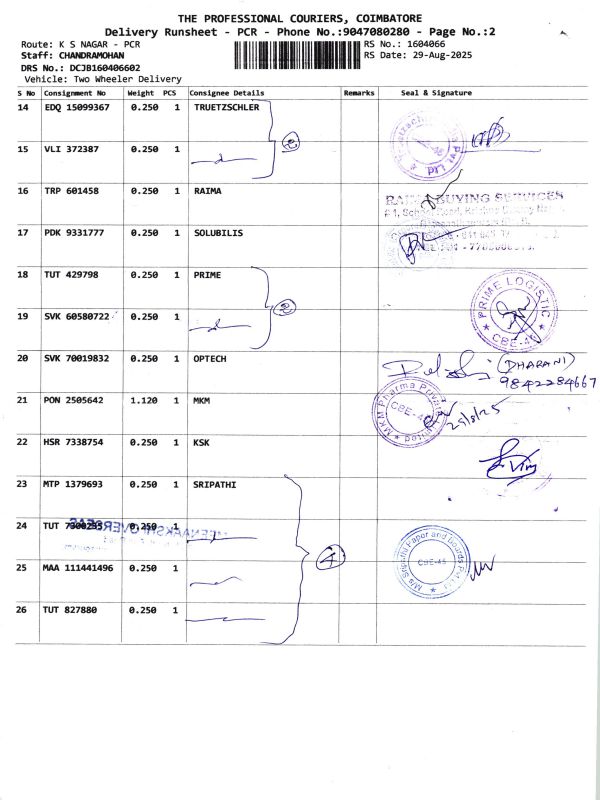 THE PROFESSIONAL COURIERS, COIMBATORE
Delivery Runsheet - PCR - Phone No.:9047080280 - Page No.:2
Route: K S NAGAR - PCR
RS No.: 1604066
Staff: CHANDRAMOHAN
RS Date: 29-Aug-2025
DRS No.: DCJB160406602
Vehicle: Two Wheeler Delivery
S No Consignment No Weight PCS Consignee Details Remarks Seal & Signature
14 EDQ 15099367 0.250 1 TRUETZSCHLER
15 VLI 372387 0.250 1
2
16 TRP 601458 0.250 1 RAIMA
BUYING SERVICES
17 PDK 9331777 0.250 1 SOLUBILIS
18 TUT 429798 0.250 1 PRIME
2
PRIME LOGISTIC
CBE-45
19 SVK 60580722 0.250 1
20 SVK 70019832 0.250 1 OPTECH
(DHARANI)
9842284667
21 PON 2505642 1.120 1 MKM
MKM Pharma Private Limited
CBE-45
22 HSR 7338754 0.250 1 KSK
23 MTP 1379693 0.250 1 SRIPATHI
24 TUT 0.250 1
MEENAAKSHI OVERSEAS
4
M/s Sripathi Paper and Boards Pvt Ltd
CBE-45
25 MAA 111441496 0.250 1
26 TUT 827880 0.250 1